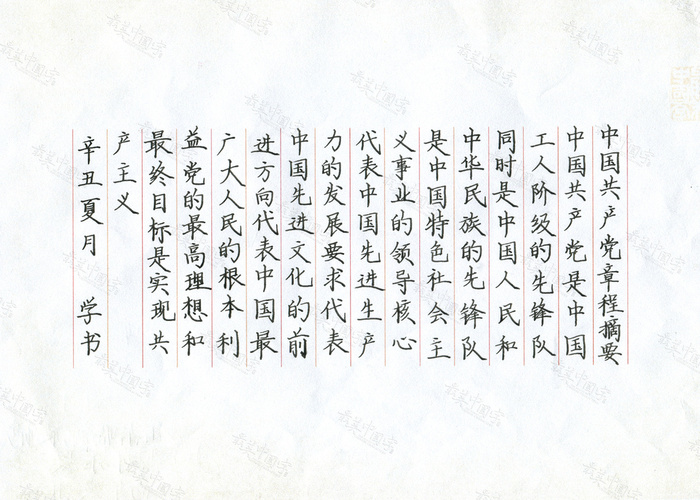 中国共产党章程摘要
中国共产党是中国
工人阶级的先锋队
同时是中国人民和
中华民族的先锋队
是中国特色社会主
义事业的领导核心
代表中国先进生产
力的发展要求代表
中国先进文化的前
进方向代表中国最
广大人民的根本利
益党的最高理想和
最终目标是实现共
产主义
辛丑夏月 学书